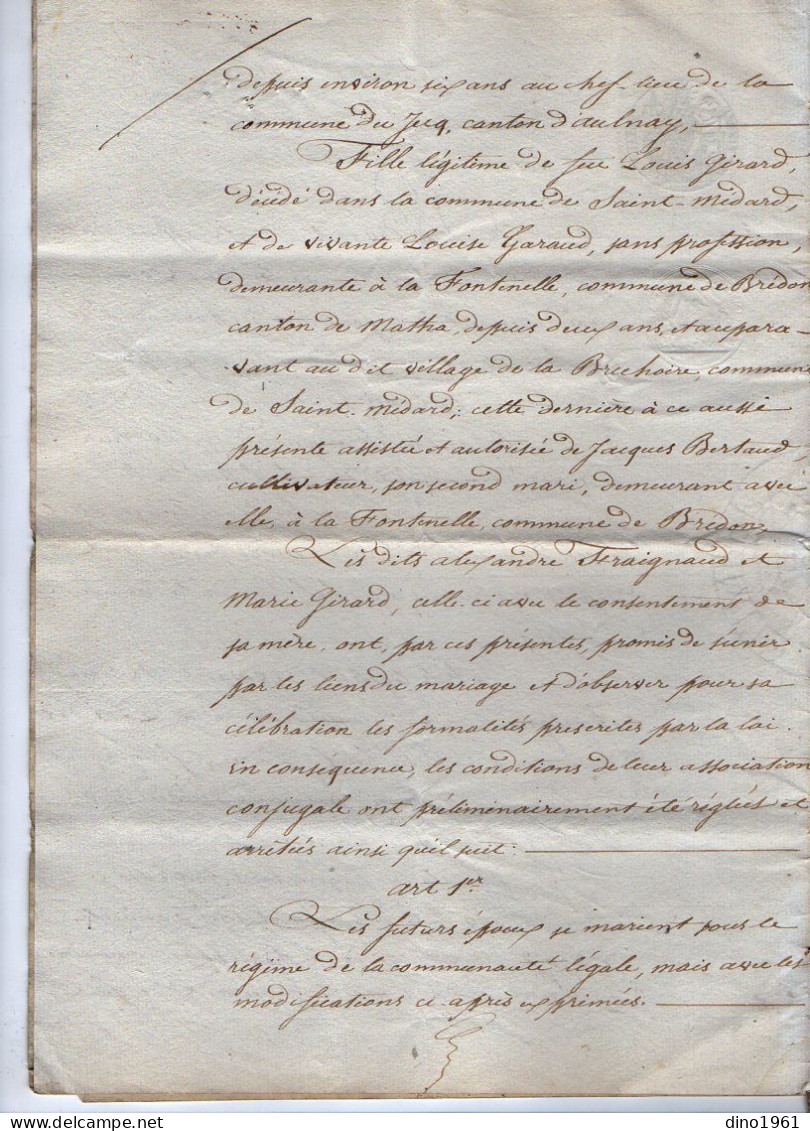 depuis environ six ans au chef-lieu de la
commune du Jicq, canton d'aulnay,
Fille légitime de feu Louis Girard,
décédé dans la commune de Saint-Médard,
et de vivante Louise Garaud, sans profession,
demeurante à la Fontenelle, commune de Brédon
canton de Matha, depuis deux ans, et aupara-
vant au dit village de la Brehoire, commune
de Saint-Médard; cette dernière à ce aussi
présente assistée et autorisée de Jacques Bertaud,
cultivateur, son second mari, demeurant avec
elle, à la Fontenelle, commune de Bredon,
Les dits alexandre Fraignaud et
Marie Girard, celle-ci avec le consentement de
sa mère, ont, par ces présentes, promis de s'unir
par les liens du mariage et d'observer pour sa
célébration les formalités prescrites par la loi.
en conséquence, les conditions de leur association
conjugale ont préliminairement été réglées et
arrêtées ainsi qu'il suit:
art 1er
Les futurs époux se marient sous le
régime de la communauté légale, mais avec les
modifications ci-après exprimées.
dino1961